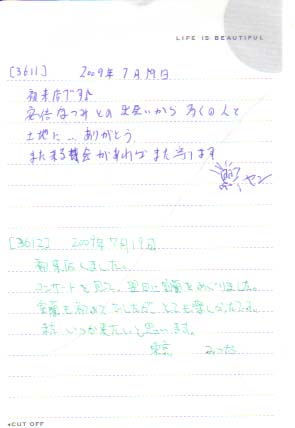 LIFE IS BEAUTIFUL
[3611] 2009年7月19日
初来店です♪
安倍なつみとの出会いから多くの人と
土地に…ありがとう
また来る機会があればまた寄ります
ヤン
[3612] 2009年7月19日
初来店しました。
コンサートを見て、翌日に室蘭をめぐりました。
室蘭も初めてでしたが、とても楽しかったです。
また いつか来たいと思います。
東京
◂CUT OFF